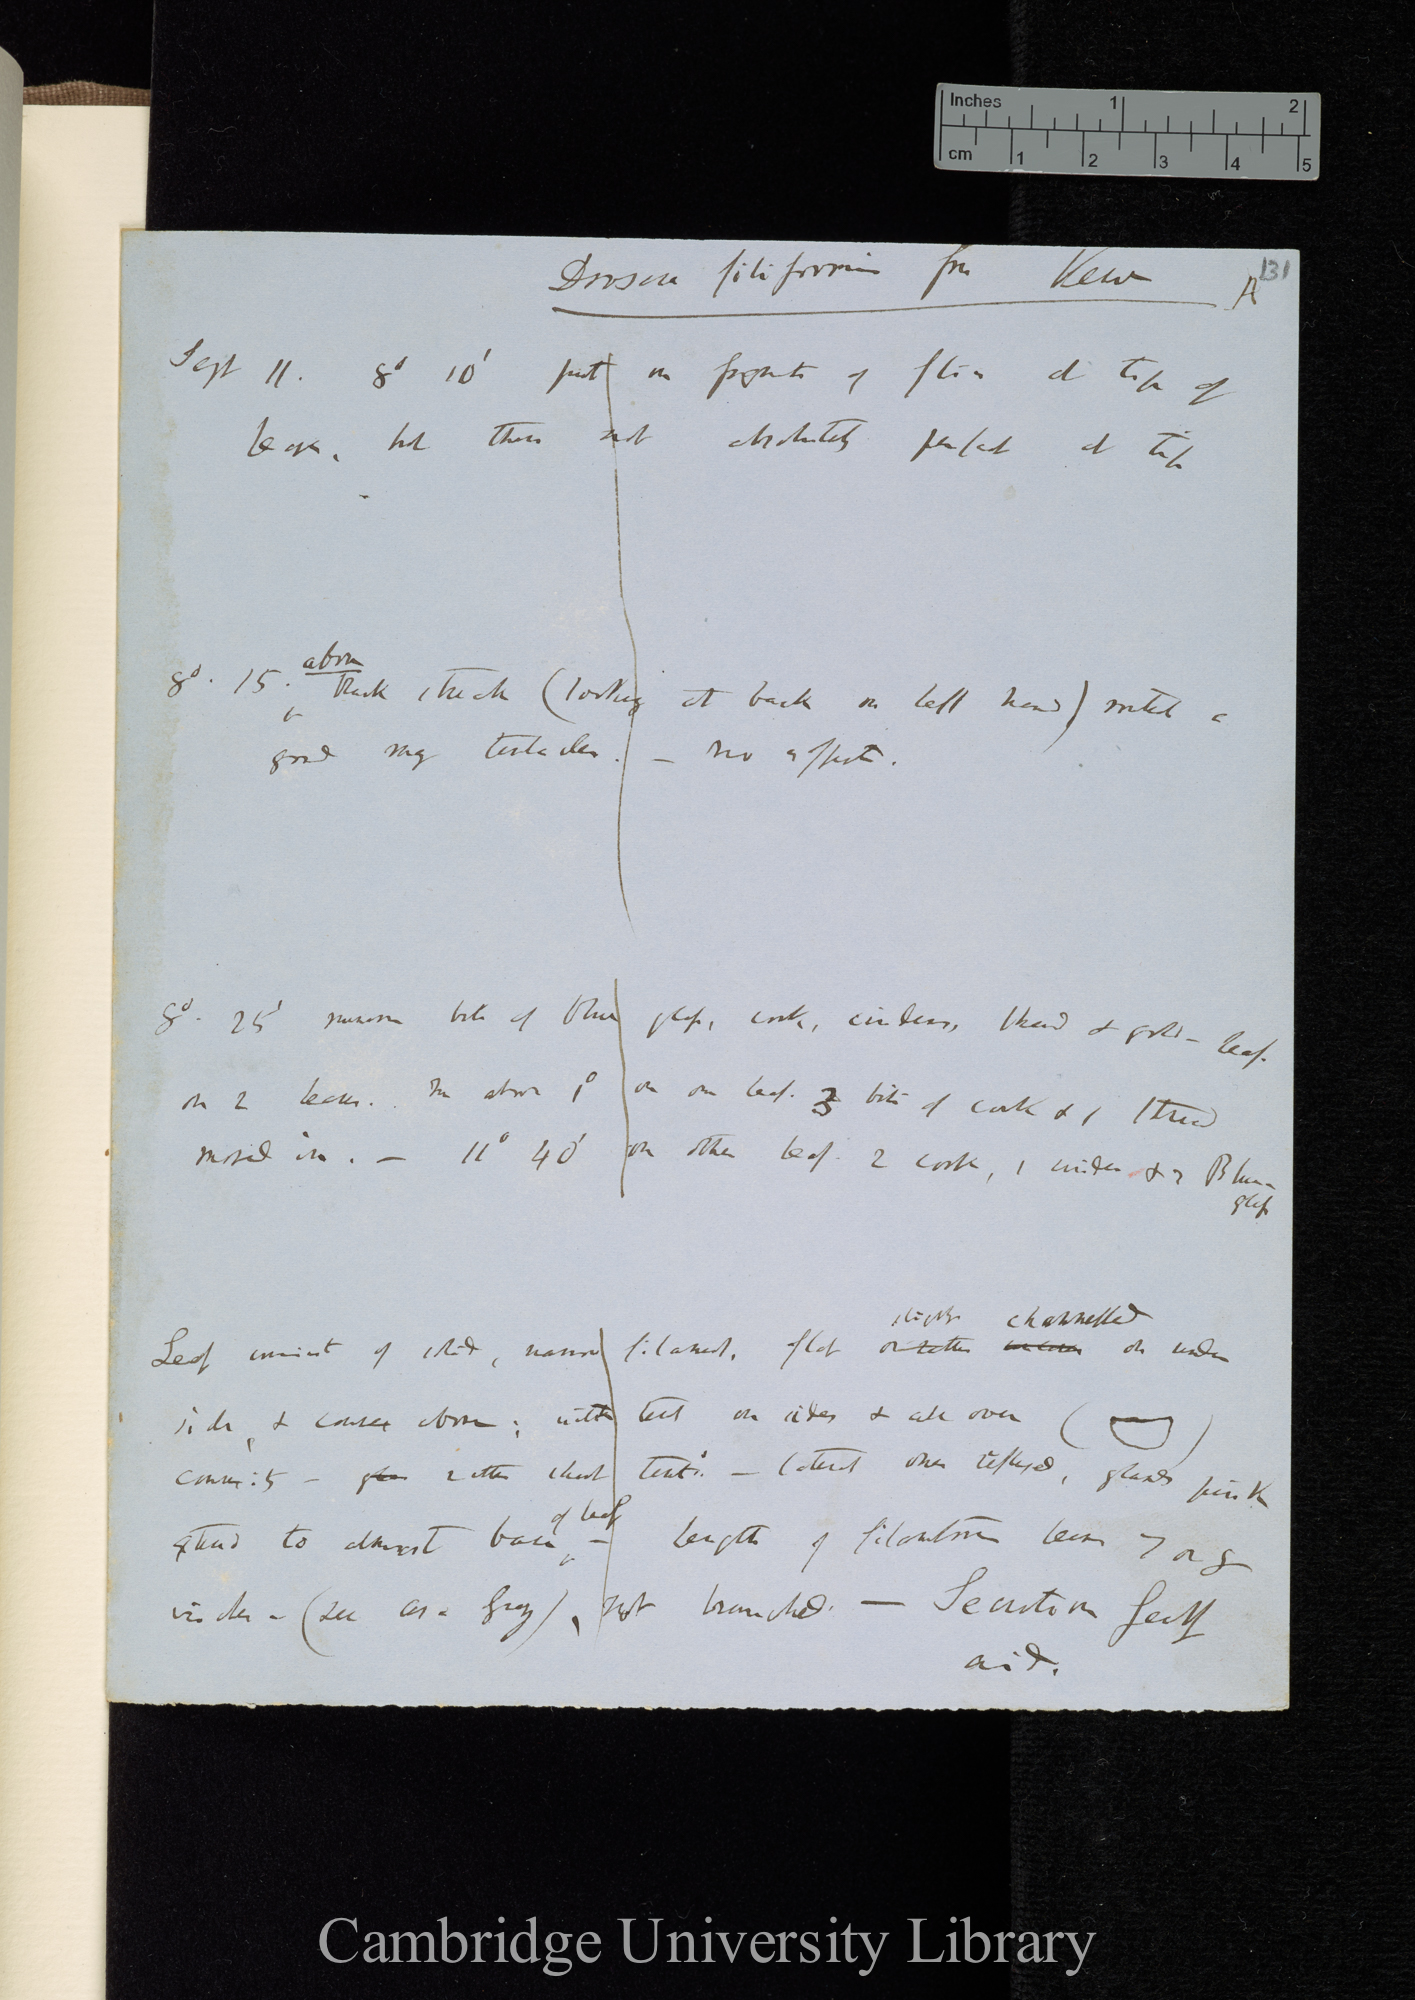 Inches 1 2
cm 1 2 3 4 5
131
Drosera filiformis from Kew A
Sept 11. 8° 10' put on fragments of flies at tip of
leaves, but these not absolutely perfect at tip
8°. 15. above black streak (looking at back on left hand)
good many tentacles. — no effect.
8°. 25' bits of Blue glass, cork, cinders, thread & gold-leaf
on 2 leaves. on one leaf. 3 bits of cork & 1 thread
moved in. — 11° 40' on other leaf 2 cork, 1 cinder & 2 Blue
glass
slightly channelled
Leaf consist of narrow filament, flat or rather on under
side, & convex above; with tent on sides & all over
convexity — rather short tent. — lateral ones reflexed, glands pink
of leaf
extend to almost base — Length of leaves 7 or 8
inches — (see Asa Gray), not branched. — Secretion
acid.
Cambridge University Library